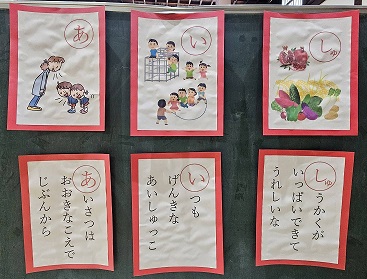 あ
い
しゅ
あいさつは
おおきなこえで
じぶんから
いつも
げんきな
あいしゅっこ
しゅうかくが
いっぱいできて
うれしいな